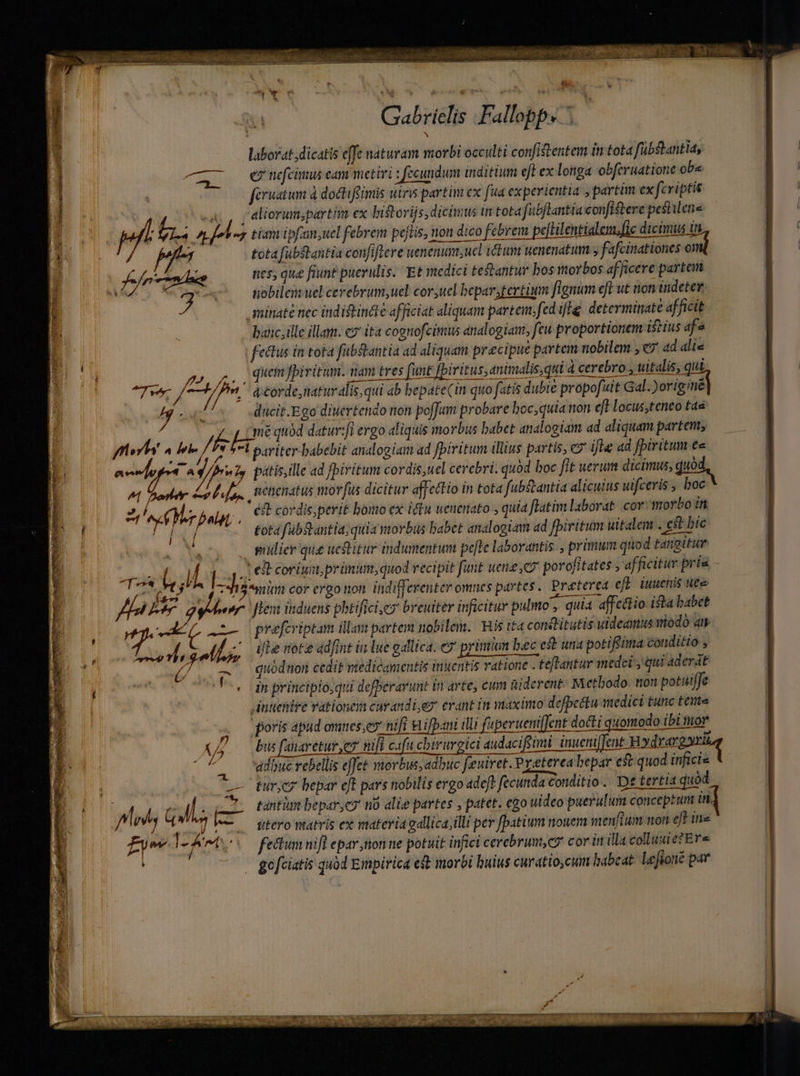 Gabrielis Fallopp.
laborat, dicatis esse naturam morbi occulti consistentem in tota substantia,
& nescimus eam metiri: secundum inditium est ex longa obseruatione ob-
seruatum à doctissimis uiris partim ex sua experientia, partim ex scriptis
aliorum, partim ex historijs, dicimus in tota substantia consistere pestilen-
tiam ipsam, uel febrem pestis, non dico febrem pestilentialem, sic dicimus in
tota substantia consistere uenenum, uel ictum uenenatum, fascinationes om
nes, quæ fiunt puerulis. Et medici testantur hos morbos afficere partem
nobilem uel cerebrum, uel cor, uel hepar, tertium signum est ut non indeter-
minatè nec indistinctè afficiat aliquam partem, sed iste determinatè afficit
hanc, ille illam. & ita cognoscimus analogiam, seu proportionem istius af-
fectus in tota substantia ad aliquam præcipuè partem nobilem, & ad ali-
quem spiritum. nam tres sunt spiritus, animalis, qui à cerebro, uitalis, qui
à corde, naturalis, qui ab hepate (in quo satis dubie proposuit Gal.) originē
ducit. Ego diuertendo non possum probare hoc, quia non est locus, teneo ta-
mē quòd datur: si ergo aliquis morbus habet analogiam ad aliquam partem,
pariter habebit analogiam ad spiritum illius partis, & iste ad spiritum e-
patis, ille ad spiritum cordis, uel cerebri. quòd hoc sit uerum dicimus, quòd
uenenatus morsus dicitur affectio in tota substantia alicuius uisceris, hoc
est cordis, perit homo ex ictu uenenato, quia statim laborat cor morbo in
tota substantia, quia morbus habet analogiam ad spiritum uitalem. est hic
mulier quæ uestitur indumentum peste laborantis, primum quod tangitur
est corium, primum, quod recipit sunt uenæ, & porositates, afficitur pri-
mum cor ergo non indifferenter omnes partes. Præterea est iuuenis ue-
stem induens phtisici, & breuiter inficitur pulmo, quia affectio ista habet
præscriptam illam partem nobilem. His ita constitutis uideamus modò an
istæ notæ adsint in lue gallica. & primum hæc est una potissima conditio,
quòd non cedit medicamentis inuentis ratione. testantur medci, qui aderāt
in principio, qui desperarunt in arte, cum uiderent Methodo non potuisse
inuenire rationem curandi, & erant in maximo despectu medici tunc tem-
poris apud omnes, & nisi Hispani illi superuenissent docti quomodo ibi mor
bus sanaretur, & nisi casu chirurgici audacissimi inuenissent Hydrargyriū
adhuc rebellis esset morbus, adhuc sæuiret. Præterea hepar est quod infici-
tur, & hepar est pars nobilis ergo adest secunda conditio. De tertia quòd
tantùm hepar, & nō aliæ partes, patet. ego uideo puerulum conceptum in
utero matris ex materia gallica, illi per spatium nouem mensium non est in-
fectum nisi epar, nonne potuit infici cerebrum, & cor in illa colluuie? Er-
go sciatis quòd Empirica est morbi huius curatio, cum habeat læsionē par